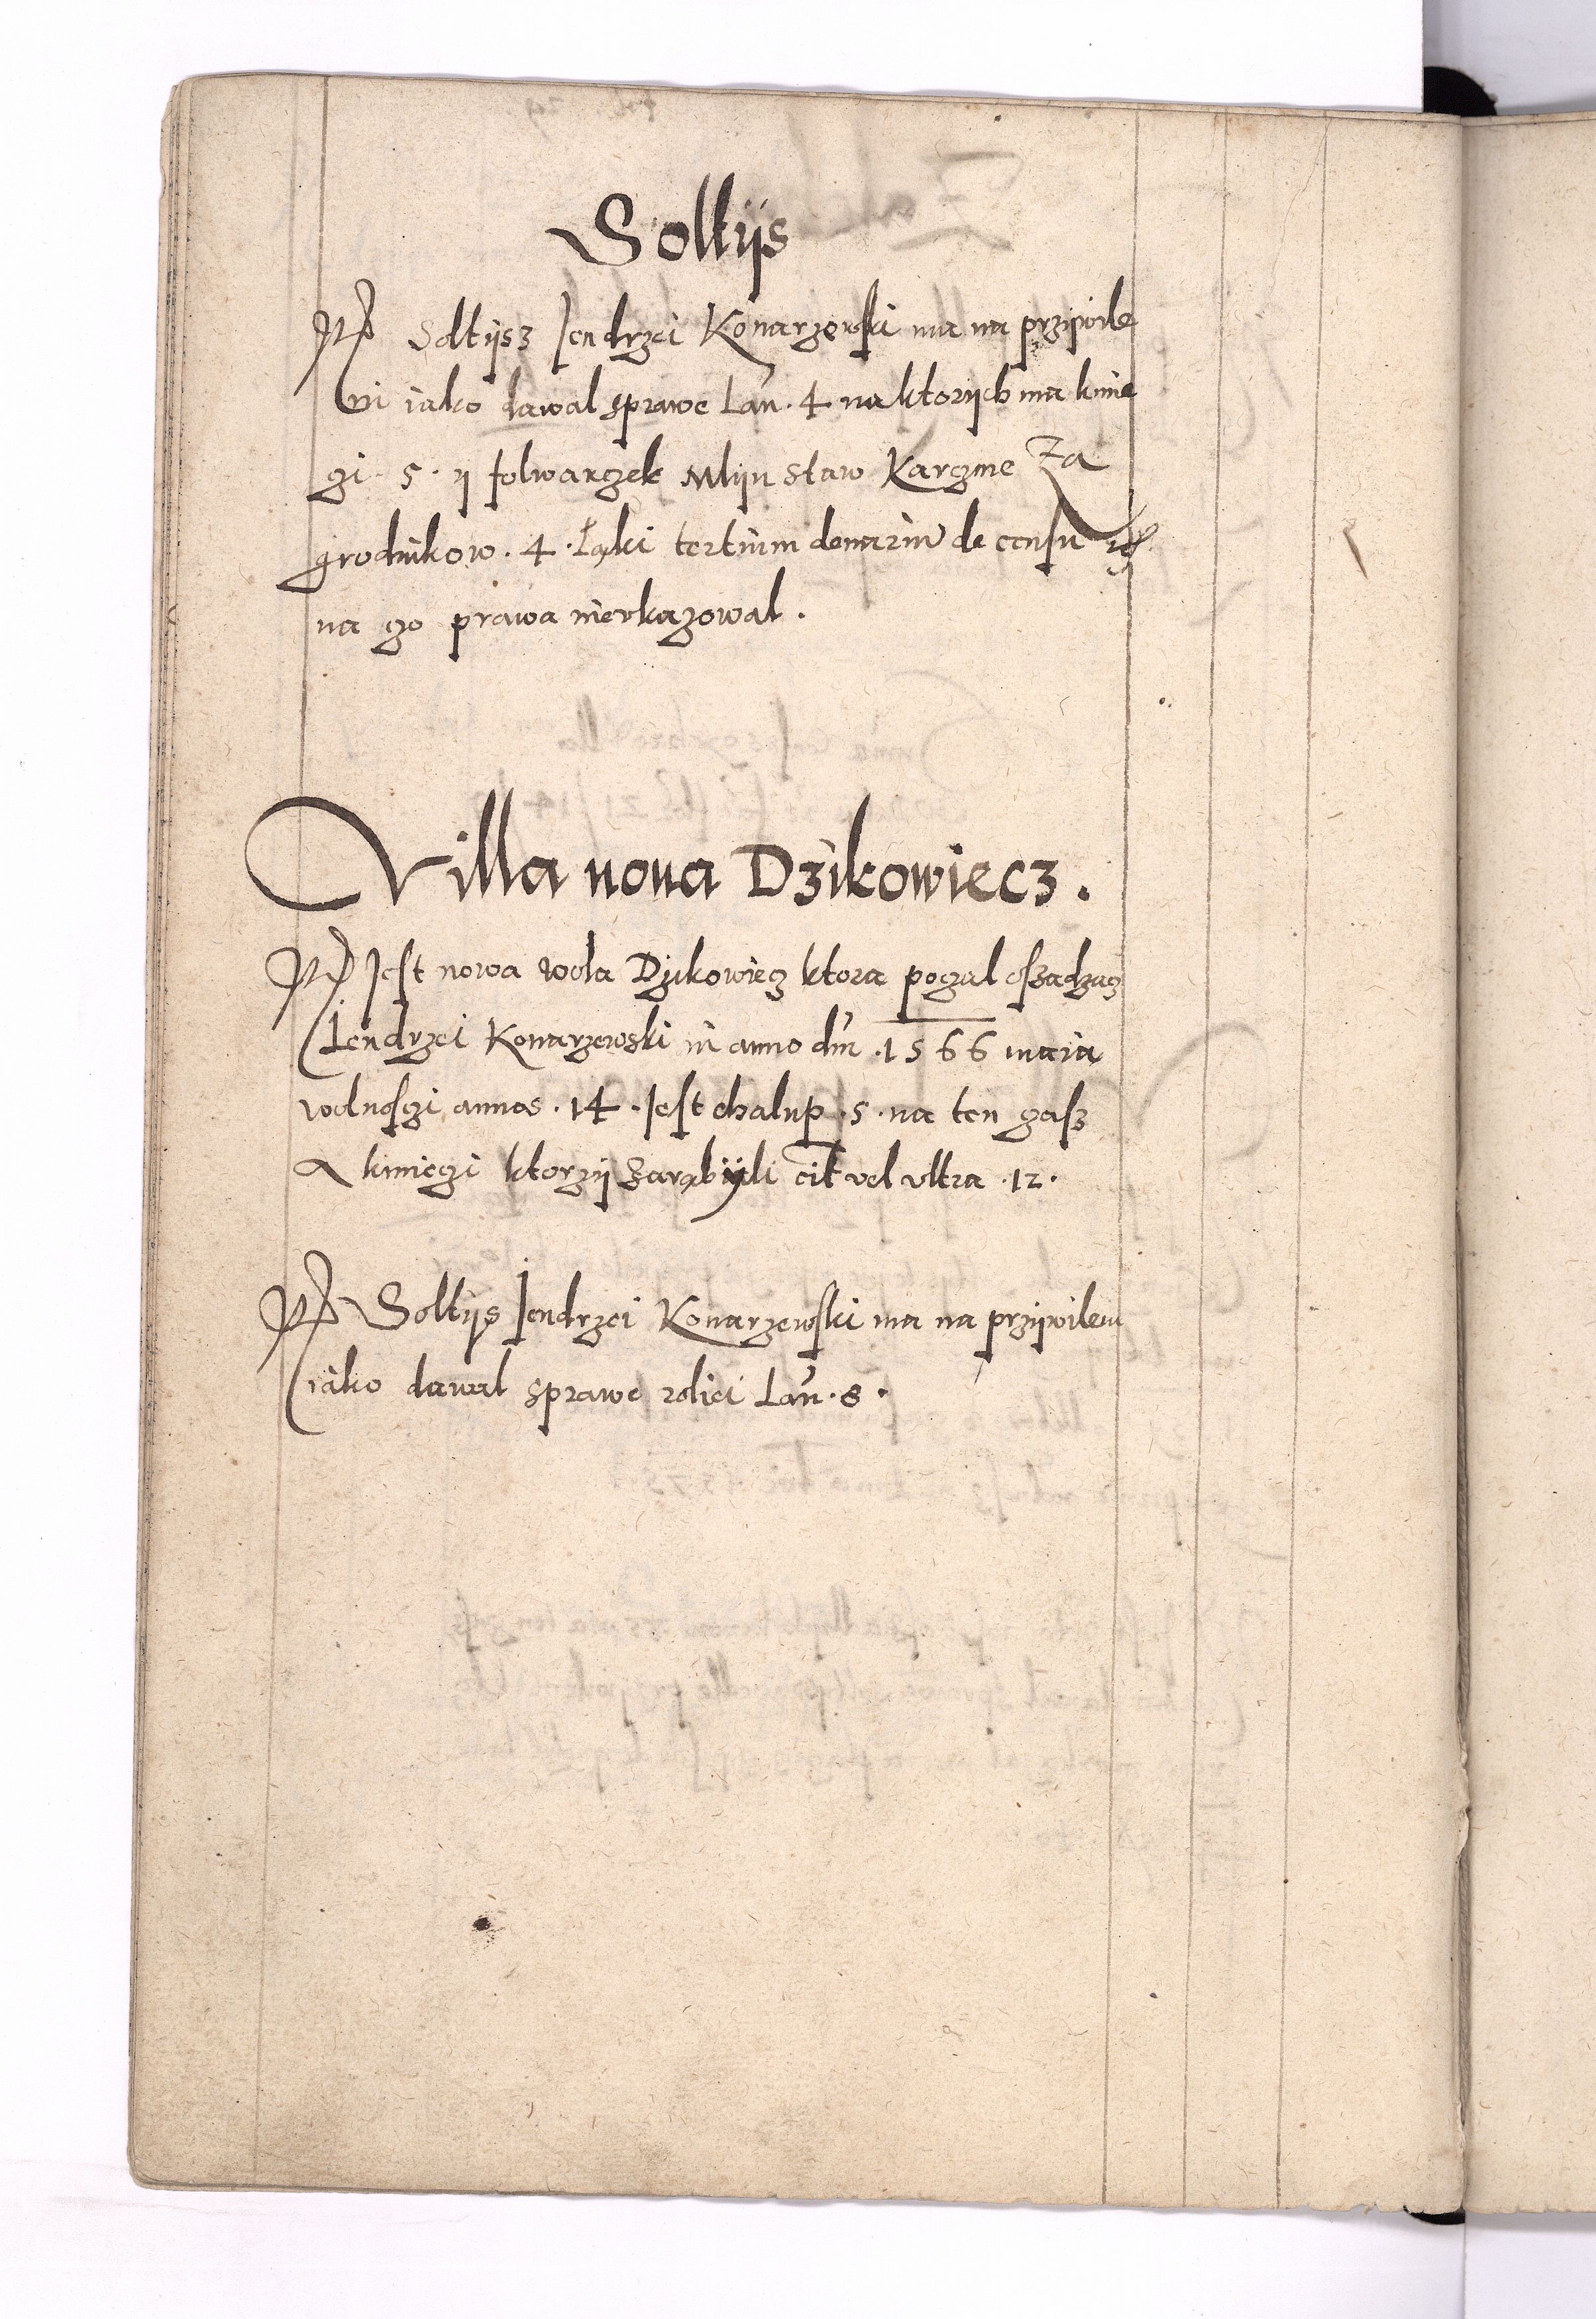 Soltijs
Nō Soltijsz Jendrzei Konarzewski ma na przijwile
vi iako dawal sprawe Lan. 4 na ktorijch ma kmie
czi. 5. ij folwarczek Mlijn staw Karczme Za
grodnikow. 4. Ląki tertium denariū de censu
na czo prawa nieukazowal.
Villa noua Dzikowiecz.
Nō Jest nowa wola Dzikowiecz ktora poczal oszadzacz
Jendrzei Konarzewski in anno dni .1566 maia
wolnosczi annos. 14. Jest chalup .5. na ten czasz
A kmieczi ktorzij Zarąbijli cit vel vltra .12.
Nō Soltijs Jendrzei Konarzewski ma na przijwileiu
iako dawal sprawe roliei Lan. 8.